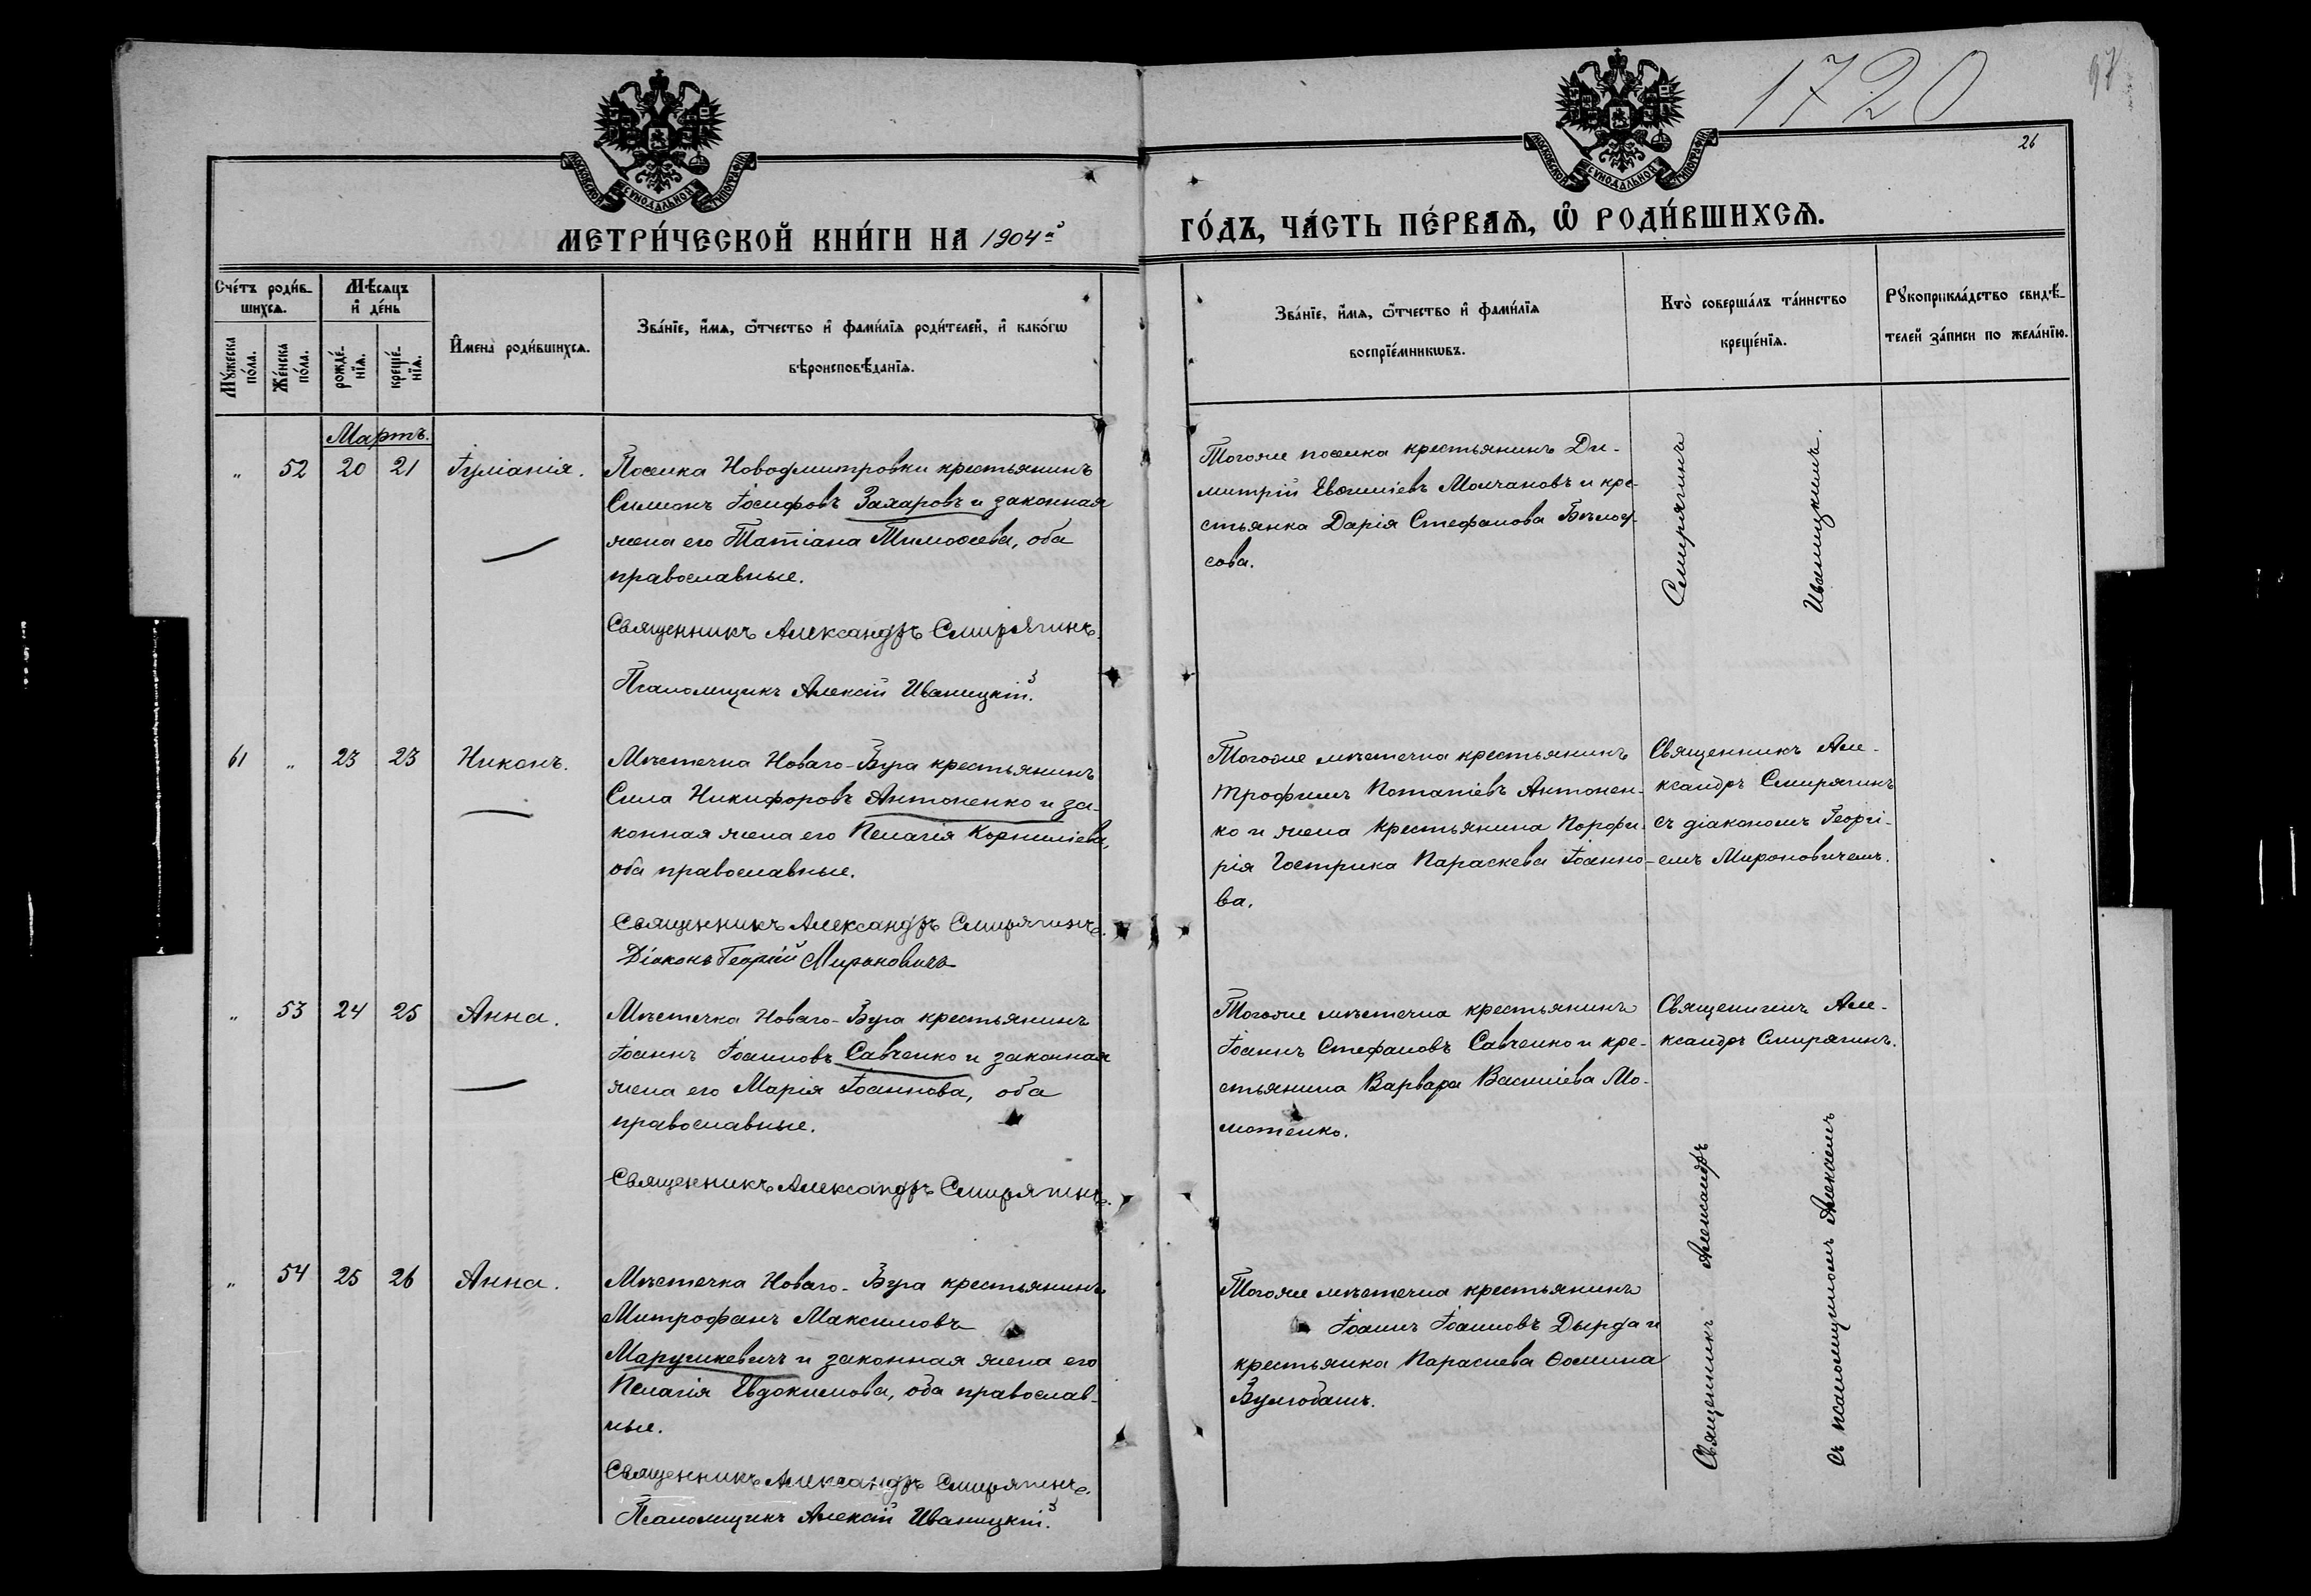 1720
97
26
МОСКОВСКОЙ СѴНОДАЛЬНОЙ ТИПОГРАФІИ
МОСКОВСКОЙ СѴНОДАЛЬНОЙ ТИПОГРАФІИ
МЕТРИ́ЧЕСКОЙ КНИ́ГИ НА 1904й
ГО́ДЪ, ЧА́СТЬ ПЕ́РВАѦ, Ѡ҆ РОДИ́ВШИХСѦ.
Сче́тъ роди́в-
шихсѧ.
Мѣ́сѧцъ
и҆ де́нь
Мꙋ́жеска
по́ла.
Же́нска
по́ла.
рожде́-
нїѧ.
креще́-
нїѧ.
И҆мена̀ роди́вшихсѧ.
Зва́нїе, и҆́мѧ, ѻ҆́тчество и҆ фами́лїѧ роди́телей, и҆ како́гѡ
вѣроисповѣ́данїѧ.
Зва́нїе, и҆́мѧ, ѻ҆́тчество и҆ фами́лїѧ
воспрїе́мникѡвъ.
Кто̀ соверша́лъ та́инство
креще́нїѧ.
Рꙋкоприкла́дство свидѣ́-
телей за́писи по жела́нїю.
Мартъ.
" 52 20 21 Іуліанія.
Поселка Новодмитровки крестьянинъ
Симеонъ Іосифовъ Захаровъ и законная
жена его Татіана Тимоѳеева, оба
православные.
Священникъ Александръ Смирягинъ.
Псаломщикъ Алексій Иваницкій.
Тогоже поселка крестьянинъ Ди-
митрій Евѳиміевъ Молчановъ и кре-
стьянка Дарія Стефанова Бѣлоу-
сова.
Смирягинъ
Иваницкимъ.
61 " 23 23 Никонъ.
Мѣстечка Новаго-Буга крестьянинъ
Сила Никифоровъ Антоненко и за-
конная жена его Пелагія Корниліева,
оба православные.
Священникъ Александръ Смирягинъ.
Діаконъ Георгій Мироновичъ
Тогоже мѣстечка крестьянинъ
Трофимъ Потапіевъ Антонен-
ко и жена крестьянина Порфи-
рія Гострика Параскева Іоанно-
ва.
Священникъ Але-
ксандръ Смирягинъ
съ діакономъ Георгі-
емъ Мироновичемъ.
" 53 24 25 Анна.
Мѣстечка Новаго-Буга крестьянинъ
Іоаннъ Іоанновъ Савченко и законная
жена его Марія Іоаннова, оба
православные.
Священникъ Александръ Смирягинъ.
Тогоже мѣстечка крестьянинъ
Іоаннъ Стефановъ Савченко и кре-
стьянина Варвара Василіева Мо-
мотенко.
Священникъ Але-
ксандръ Смирягинъ.
" 54 25 26 Анна.
Мѣстечка Новаго-Буга крестьянинъ
Митрофанъ Максимовъ
Марушкевичъ и законная жена его
Пелагія Евдокимова, оба православ-
ные.
Священникъ Александръ Смирягинъ.
Псаломщикъ Алексій Иваницкій.
Тогоже мѣстечка крестьянинъ
Іоаннъ Іоанновъ Дырда и
крестьянка Параскева Ѳомина
Священникъ Александръ
съ псаломщикомъ Алексіемъ